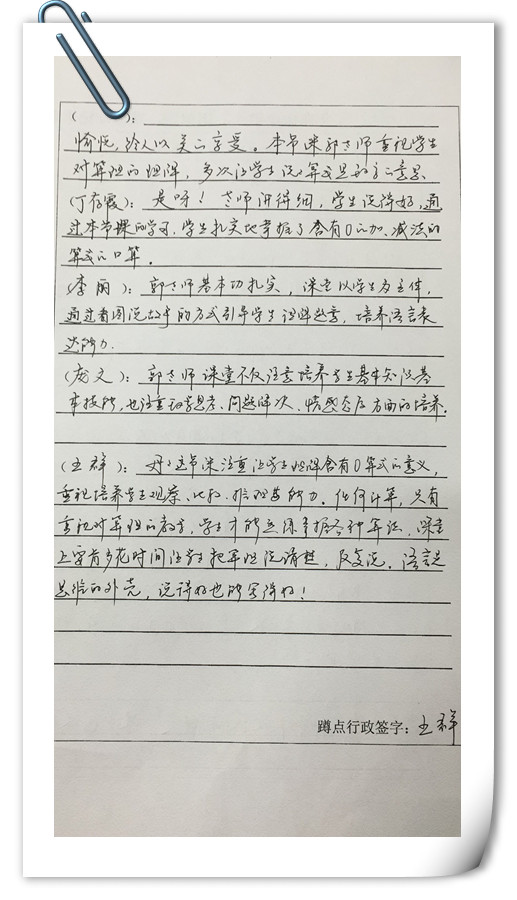 （　　）：
愉悦，给人以美的享受。本节课郭老师重视学生
对算理的理解，多次让学生说算式是的意思
（丁存霞）：是呀！老师讲得细，学生说得好，通
过本节课的学习，学生扎实地掌握了含有0的加、减法的
算式的口算。
（李丽）：郭老师基本功扎实，课堂以学生为主体，
通过看图说故事的方式引导学生理解题意，培养语言表
达能力。
（庞文）：郭老师课堂不仅注意培养学生基本知识基
本技能，也注重思考、问题解决、情感态度方面的培养。
（王群）：好的这节课注重让学生理解含有0算式的意义，
重视培养学生观察、比较、推理等能力。任何计算，只有
重视对算理的教学，学生才能熟练掌握各种算法，课堂
上要肯多花时间让学生把算理说清楚，反复说。语言是
思维的外壳，说得好也能写得好！
蹲点行政签字：王群